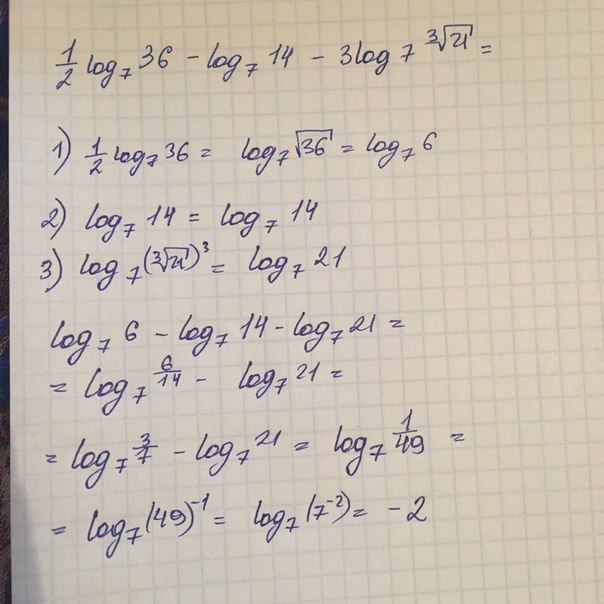 ½ log₇ 36 − log₇ 14 − 3 log₇ ∛21 =
1) ½ log₇ 36 = log₇ √36 = log₇ 6
2) log₇ 14 = log₇ 14
3) log₇ (∛21)³ = log₇ 21
log₇ 6 − log₇ 14 − log₇ 21 =
= log₇ 6/14 − log₇ 21 =
= log₇ 3/7 − log₇ 21 = log₇ 1/49 =
= log₇ (49)⁻¹ = log₇ (7⁻²) = −2